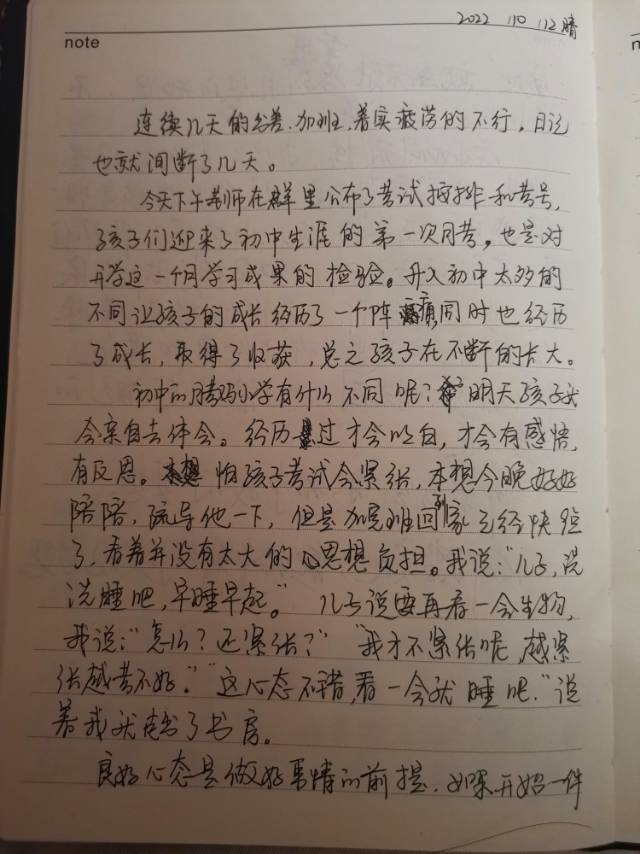 2022 10 12晴
note
连续几天的出差、加班,着实疲劳的不行,日记
也就间断了几天。
今天下午老师在群里公布了考试按排和考号,
孩子们迎来了初中生涯的第一次月考,也是对
开学这一个月学习成果的检验。升入初中太多的
不同让孩子的成长经历了一个阵痛同时也经历
了成长,取得了收获,总之孩子在不断的长大。
初中的月考与小学有什么不同呢?明天孩子就
会亲自去体会。经历过才会明白,才会有感悟,
有反思。怕孩子考试会紧张,本想今晚好好
陪陪,疏导他一下,但是加完班回到家已经快10点
了,看着并没有太大的心思想负担。我说:“儿子,洗
洗睡吧,早睡早起。”儿子说要再看一会生物,
我说:“怎么?还紧张?”“我才不紧张呢,越紧
张越考不好。”“这心态不错,看一会就睡吧。”说
着我就走出了书房。
良好心态是做好事情的前提,如果开始一件